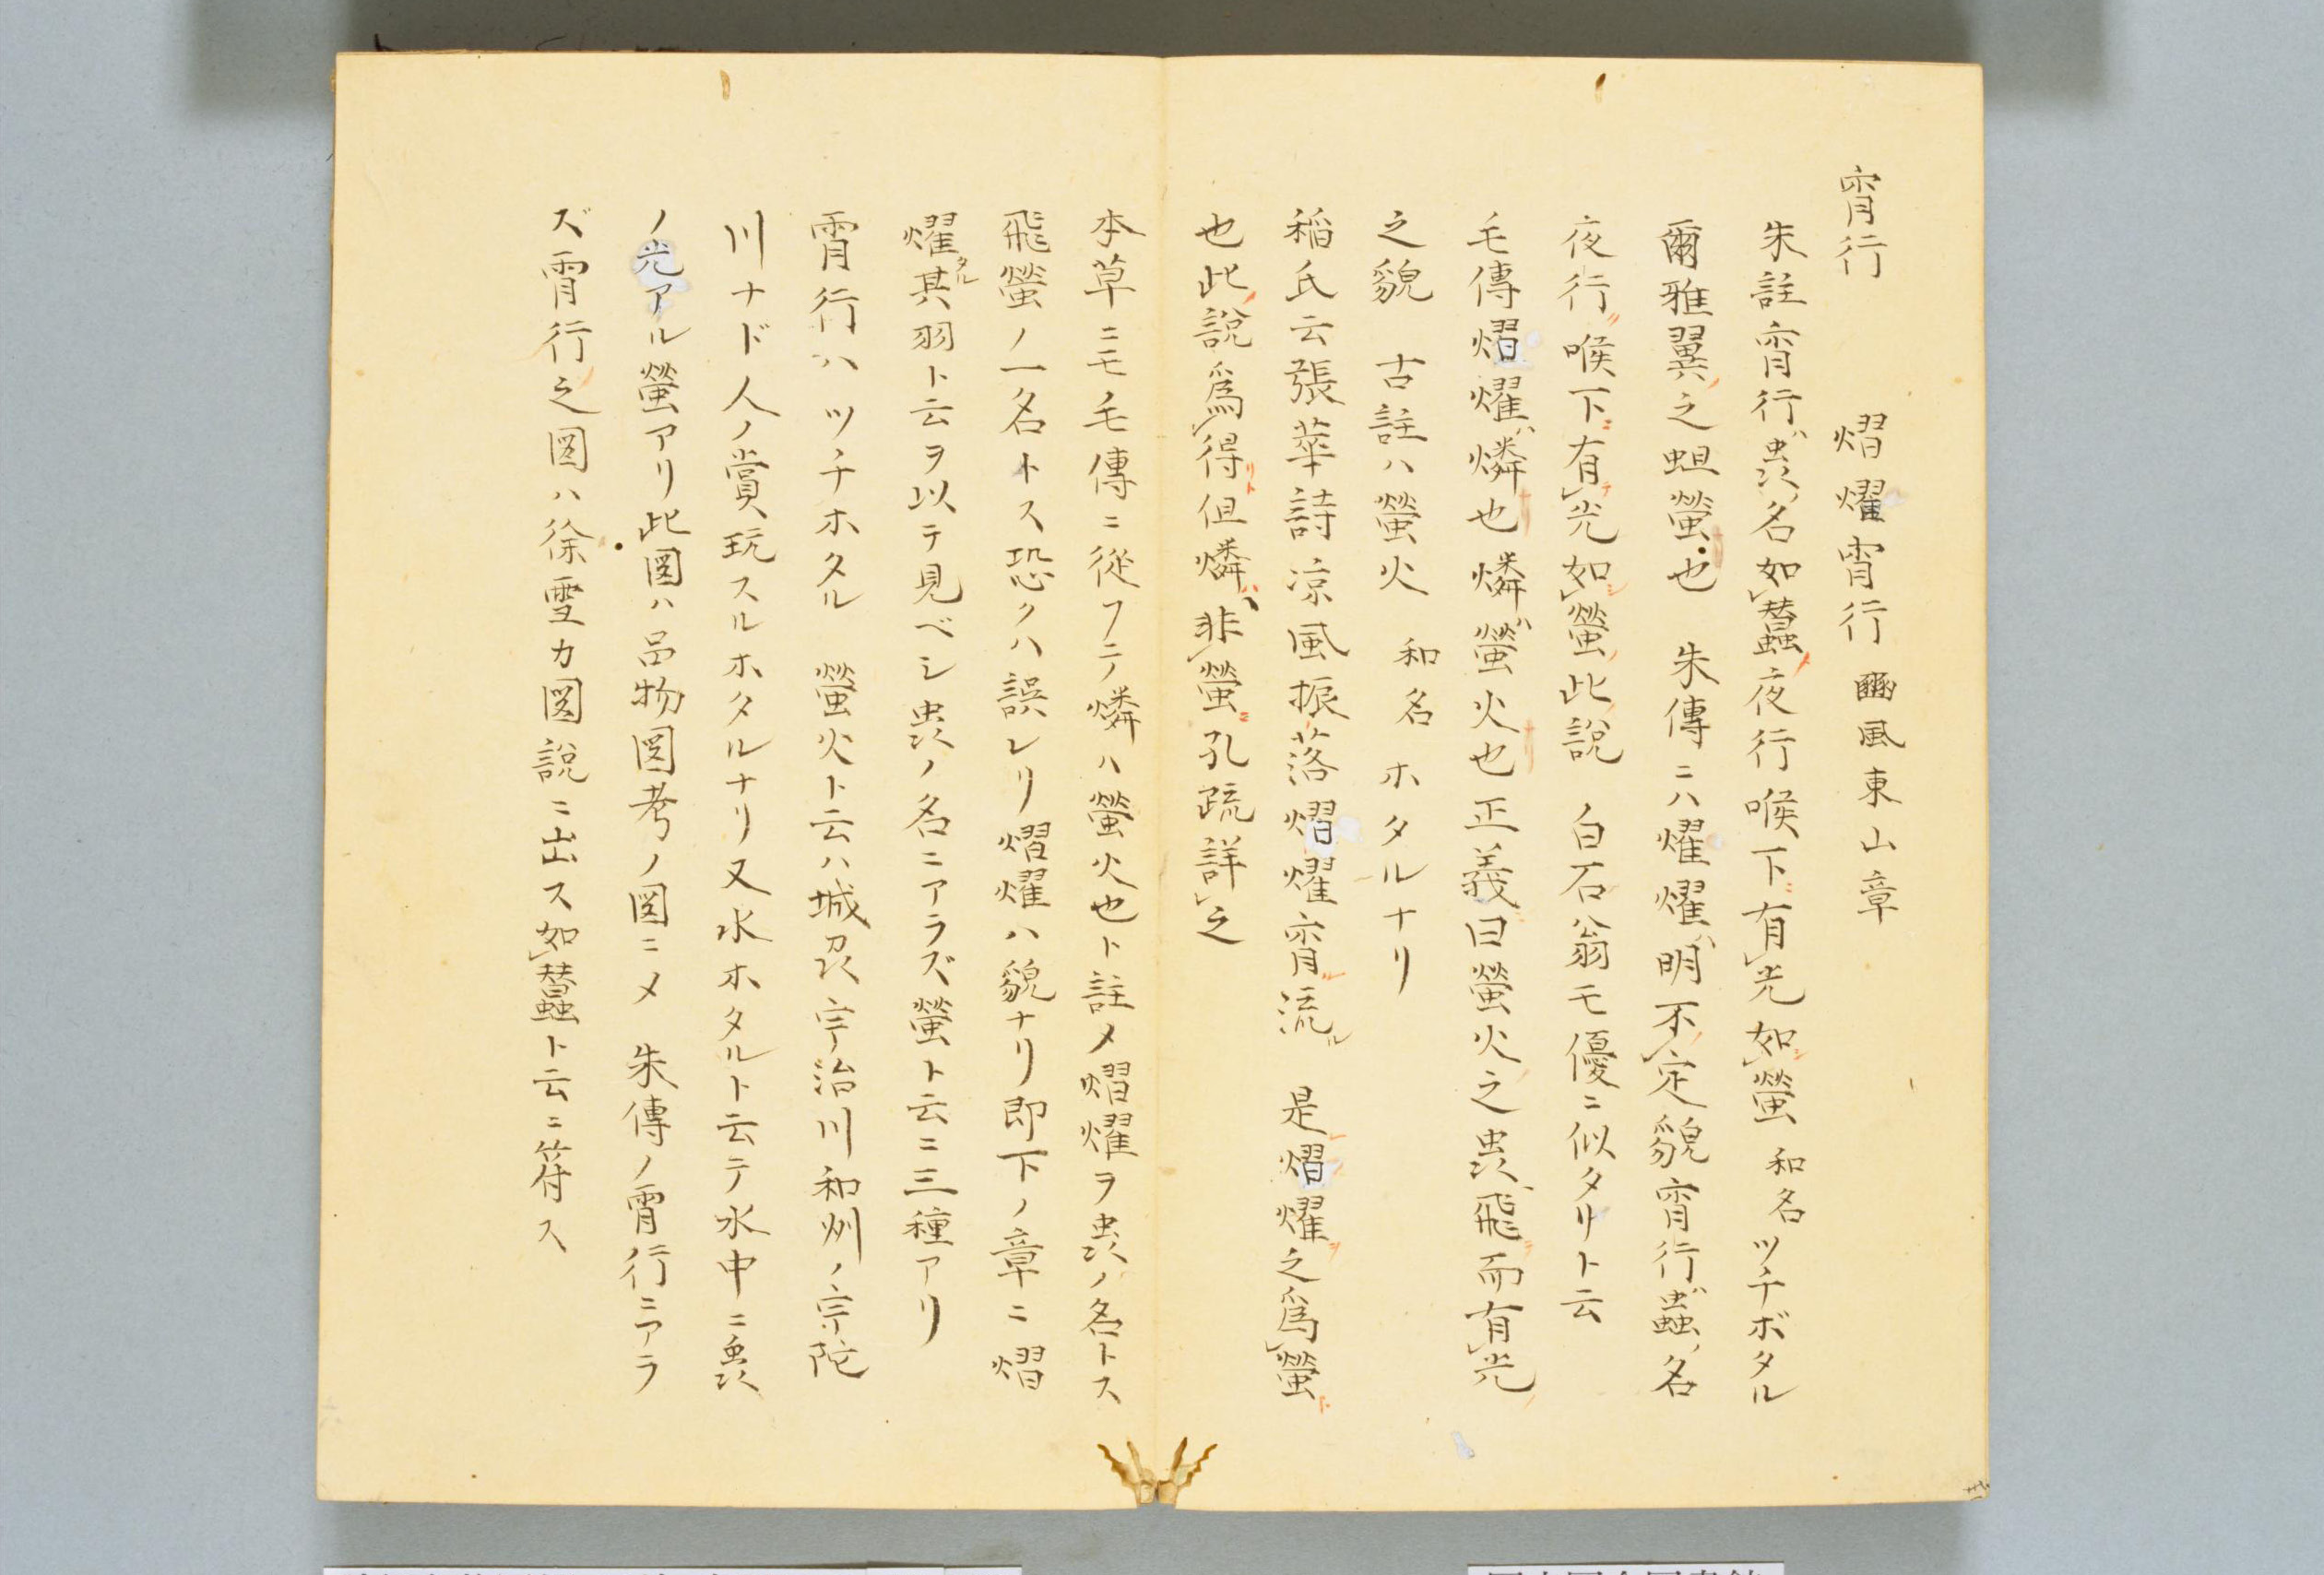 宵行　熠燿宵行 豳風東山章
朱註宵行ハ虫名如蠶夜行喉下有光如螢 和名ツチボタル
爾雅翼之蛆螢也　朱傳ニハ燿燿ハ明不定貌宵行ハ蟲名
夜行喉下有光如螢此說　白石翁モ優ニ似タリト云
毛傳熠燿ハ燐也燐ハ螢火也正義曰螢火之虫飛而有光
之貌　古註ハ螢火　和名ホタルナリ
稲氏云張華詩凉風振落熠燿宵流ル　是熠燿之爲螢
也此說爲得但燐ハ非螢孔疏詳之
本草ニモ毛傳ニ從フテ燐ハ螢火也ト註メ熠燿ヲ虫ノ名トス
飛螢ノ一名トス恐クハ誤レリ熠燿ハ貌ナリ即下ノ章ニ熠
燿タル其羽ト云ヲ以テ見ベシ虫ノ名ニアラズ螢ト云ニ三種アリ
霄行ハツチホタル　螢火ト云ハ城刕宇治川和州ノ宇陀
川ナド人ノ賞玩スルホタルナリ又水ホタルト云テ水中ニ虫
ノ光アル螢アリ此図ハ品物図考ノ図ニメ　朱傳ノ霄行ニアラ
ズ霄行之図ハ徐雪カ図説ニ出ス如蠶ト云ニ符ス